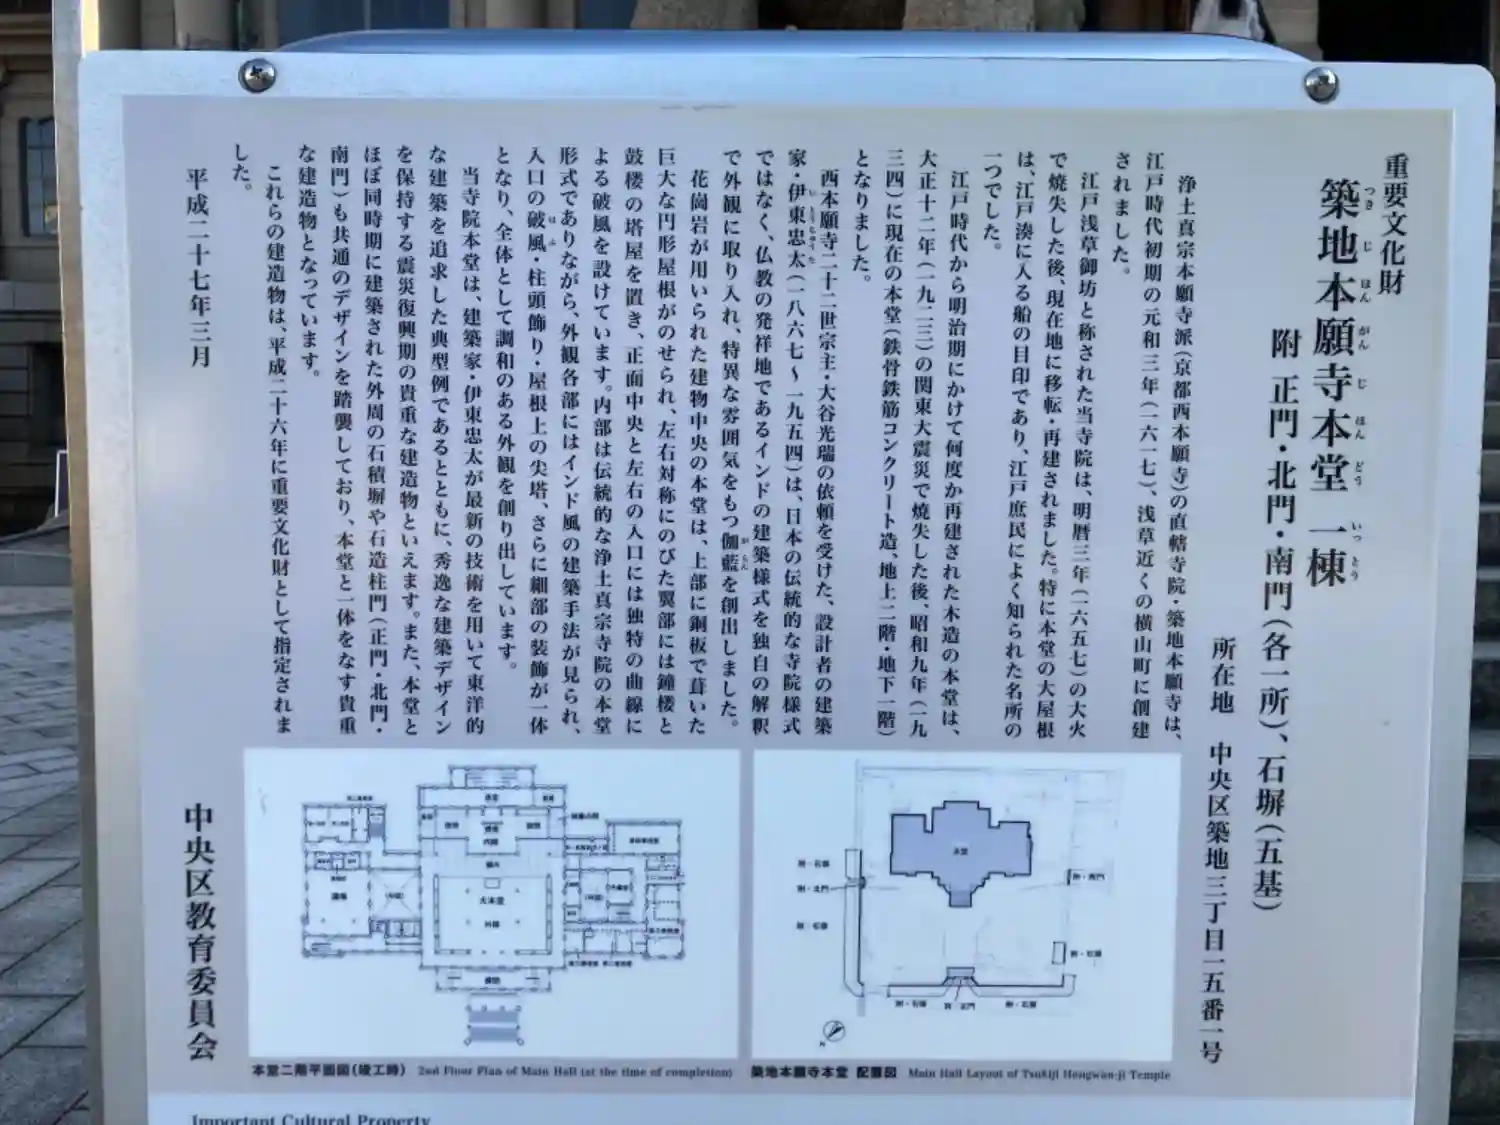 重要文化財
築地本願寺本堂 一棟
つき じ ほん がん じ ほん どう いっ とう
附 正門・北門・南門(各一所)、石塀(五基)
所在地 中央区築地三丁目一五番一号
浄土真宗本願寺派(京都西本願寺)の直轄寺院・築地本願寺は、
江戸時代初期の元和三年(一六一七)、浅草近くの横山町に創建
されました。
江戸浅草御坊と称された当寺院は、明暦三年(一六五七)の大火
で焼失した後、現在地に移転・再建されました。特に本堂の大屋根
は、江戸湊に入る船の目印であり、江戸庶民によく知られた名所の
一つでした。
江戸時代から明治期にかけて何度か再建された木造の本堂は、
大正十二年(一九二三)の関東大震災で焼失した後、昭和九年(一九
三四)に現在の本堂(鉄骨鉄筋コンクリート造、地上二階・地下一階)
となりました。
西本願寺二十二世宗主・大谷光瑞の依頼を受けた、設計者の建築
家・伊東忠太(一八六七〜一九五四)は、日本の伝統的な寺院様式
い とうちゅう た
ではなく、仏教の発祥地であるインドの建築様式を独自の解釈
で外観に取り入れ、特異な雰囲気をもつ伽藍を創出しました。
が らん
花崗岩が用いられた建物中央の本堂は、上部に銅板で葺いた
巨大な円形屋根がのせられ、左右対称にのびた翼部には鐘楼と
鼓楼の塔屋を置き、正面中央と左右の入口には独特の曲線に
よる破風を設けています。内部は伝統的な浄土真宗寺院の本堂
形式でありながら、外観各部にはインド風の建築手法が見られ、
入口の破風・柱頭飾り・屋根上の尖塔、さらに細部の装飾が一体
は ふ
となり、全体として調和のある外観を創り出しています。
当寺院本堂は、建築家・伊東忠太が最新の技術を用いて東洋的
な建築を追求した典型例であるとともに、秀逸な建築デザイン
を保持する震災復興期の貴重な建造物といえます。また、本堂と
ほぼ同時期に建築された外周の石積塀や石造柱門(正門・北門・
南門)も共通のデザインを踏襲しており、本堂と一体をなす貴重
な建造物となっています。
これらの建造物は、平成二十六年に重要文化財として指定されま
した。
平成二十七年三月
中央区教育委員会
大本堂
外陣
内陣
本堂
附・石塀
附・北門
附・石塀
附・南門
附・石塀
附・石塀
附・正門
附・石塀
N
本堂二階平面図(竣工時) 2nd Floor Plan of Main Hall (at the time of completion)
築地本願寺本堂 配置図 Main Hall Layout of Tsukiji Hongwan-ji Temple
Important Cultural Property